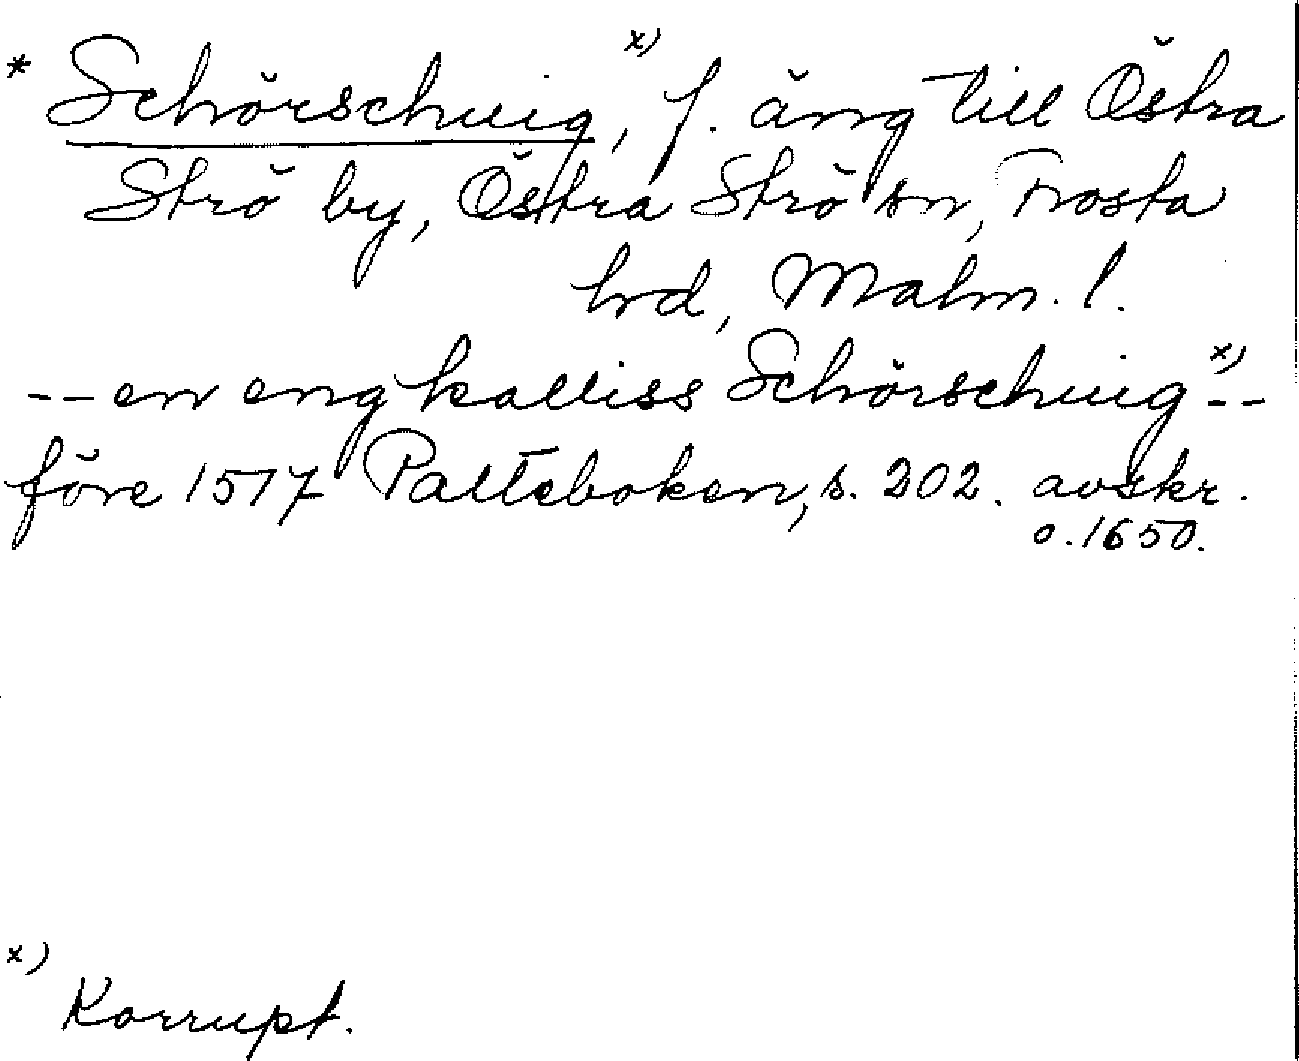 * Schörschuig,ˣ⁾ f. äng till Östra
Strö by, Östra Strö sn, Frosta
hrd, Malm. l.
-- en eng kalliss Schörschuigˣ⁾--
före 1517 Palteboken, s. 202. avskr.
o. 1650.
x) Korrupt.